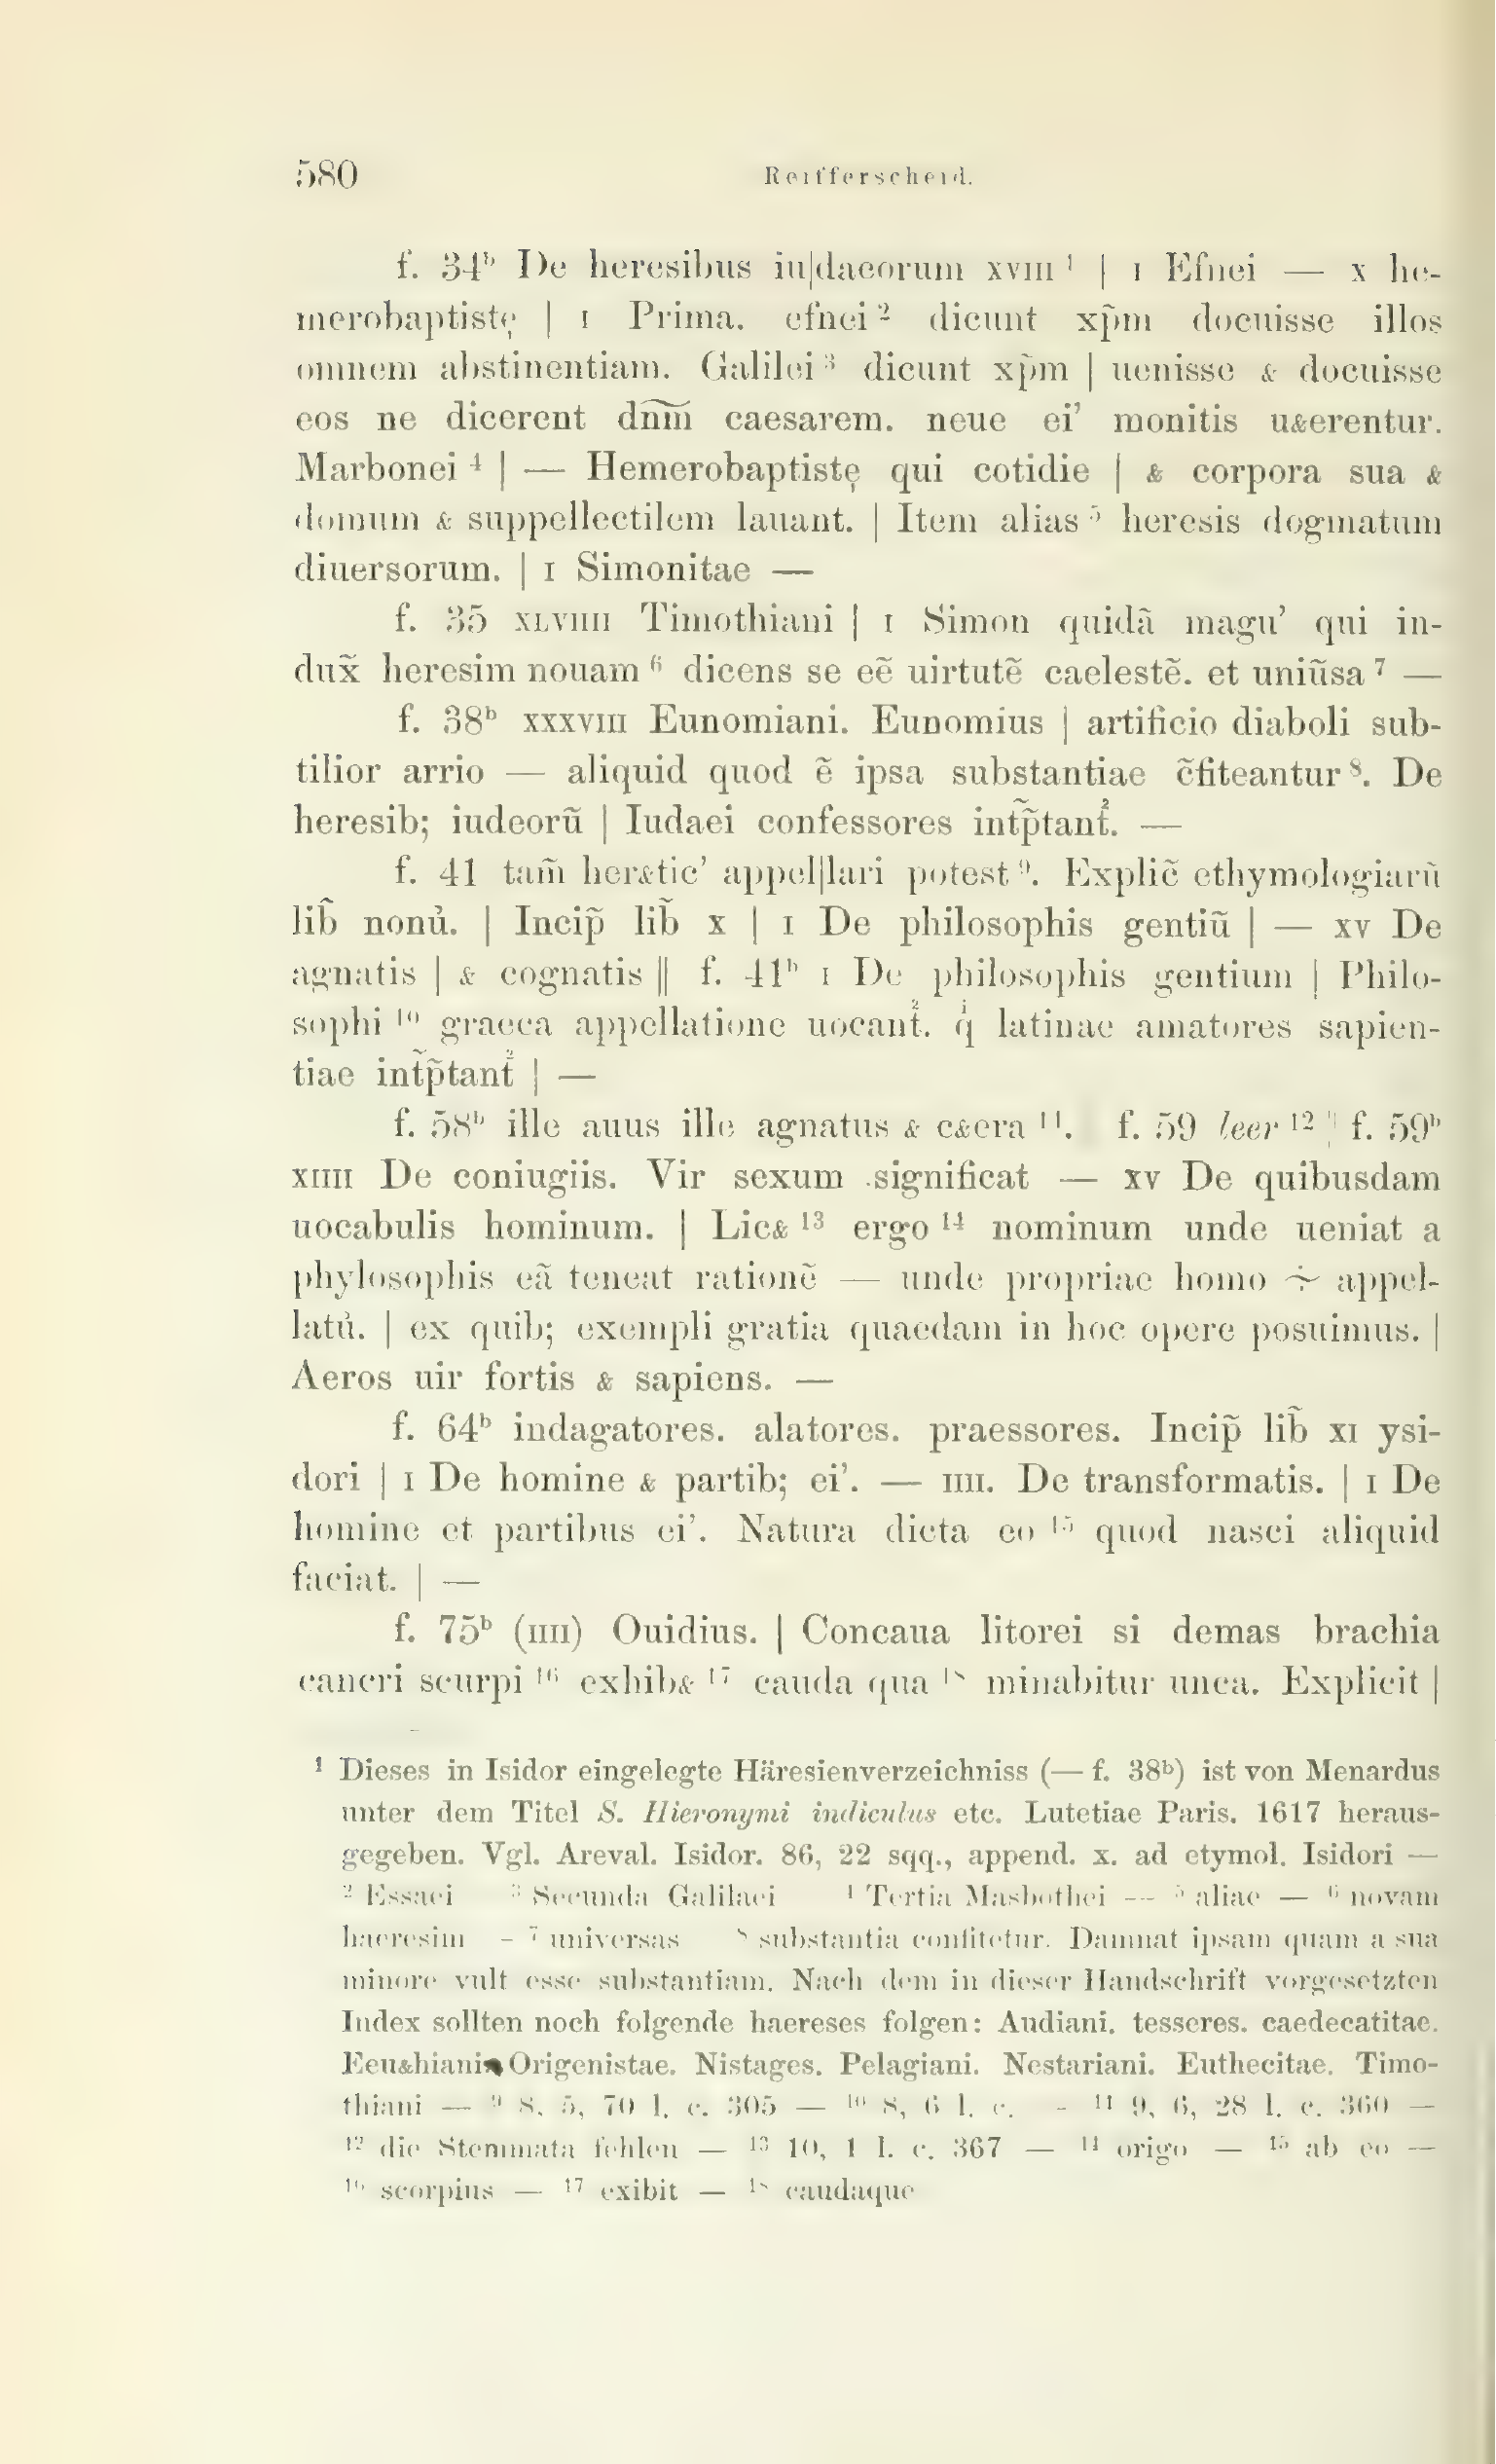 580 Reifferscheid.
f. 34ᵇ De heresibus iu|daeorum xviii ¹ | i Efnei — x he-
merobaptistę | i Prima. efnei ² dicunt xp̃m docuisse illos
omnem abstinentiam. Galilei ³ dicunt xp̃m | uenisse & docuisse
eos ne dicerent dñm̃ caesarem. neue ei’ monitis u&erentur.
Marbonei ⁴ | — Hemerobaptistę qui cotidie | & corpora sua &
domum & suppellectilem lauant. | Item alias ⁵ heresis dogmatum
diuersorum. | i Simonitae —
f. 35 xlviiii Timothiani | i Simon quidã magu’ qui in-
dux̃ heresim nouam ⁶ dicens se eẽ uirtutẽ caelestẽ. et uniũsa ⁷ —
f. 38ᵇ xxxviii Eunomiani. Eunomius | artificio diaboli sub-
tilior arrio — aliquid quod ẽ ipsa substantiae c̃fiteantur ⁸. De
heresib; iudeorũ | Iudaei confessores int̃p̃tant̉. —
f. 41 tam̃ her&tic’ appel|lari potest ⁹. Explic̃ ethymologiarũ
lib̃ nonů. | Incip̃ lib̃ x | i De philosophis gentiũ | — xv De
agnatis | & cognatis || f. 41ᵇ i De philosophis gentium | Philo-
sophi ¹⁰ graeca appellatione uocant̉. qͥ latinae amatores sapien-
tiae int̃p̃tant̉ | —
f. 58ᵇ ille auus ille agnatus & c&era ¹¹. f. 59 leer ¹² | f. 59ᵇ
xiiii De coniugiis. Vir sexum significat — xv De quibusdam
uocabulis hominum. | Lic& ¹³ ergo ¹⁴ nominum unde ueniat a
phylosophis eã teneat rationẽ — unde propriae homo ÷ appel-
latů. | ex quib; exempli gratia quaedam in hoc opere posuimus. |
Aeros uir fortis & sapiens. —
f. 64ᵇ indagatores. alatores. praessores. Incip̃ lib̃ xi ysi-
dori | i De homine & partib; ei’. — iiii. De transformatis. | i De
homine et partibus ei’. Natura dicta eo ¹⁵ quod nasci aliquid
faciat. | —
f. 75ᵇ (iiii) Ouidius. | Concaua litorei si demas brachia
cancri scurpi ¹⁶ exhib& ¹⁷ cauda qua ¹⁸ minabitur unca. Explicit |
¹ Dieses in Isidor eingelegte Häresienverzeichniss (— f. 38ᵇ) ist von Menardus
unter dem Titel S. Hieronymi indiculus etc. Lutetiae Paris. 1617 heraus-
gegeben. Vgl. Areval. Isidor. 86, 22 sqq., append. x. ad etymol. Isidori —
² Essaei ³ Secunda Galilaei ⁴ Tertia Masbothei — ⁵ aliae — ⁶ novam
haeresim – ⁷ universas ⁸ substantia confitetur. Damnat ipsam quam a sua
minore vult esse substantiam. Nach dem in dieser Handschrift vorgesetzten
Index sollten noch folgende haereses folgen: Audiani. tesseres. caedecatitae.
Eeu&hiani Origenistae. Nistages. Pelagiani. Nestariani. Euthecitae. Timo-
thiani — ⁹ 8, 5, 70 l. c. 305 — ¹⁰ 8, 6 l. c. - ¹¹ 9, 6, 28 l. c. 360 —
¹² die Stemmata fehlen — ¹³ 10, 1 l. c. 367 — ¹⁴ origo — ¹⁵ ab eo —
¹⁶ scorpius — ¹⁷ exibit — ¹⁸ caudaque